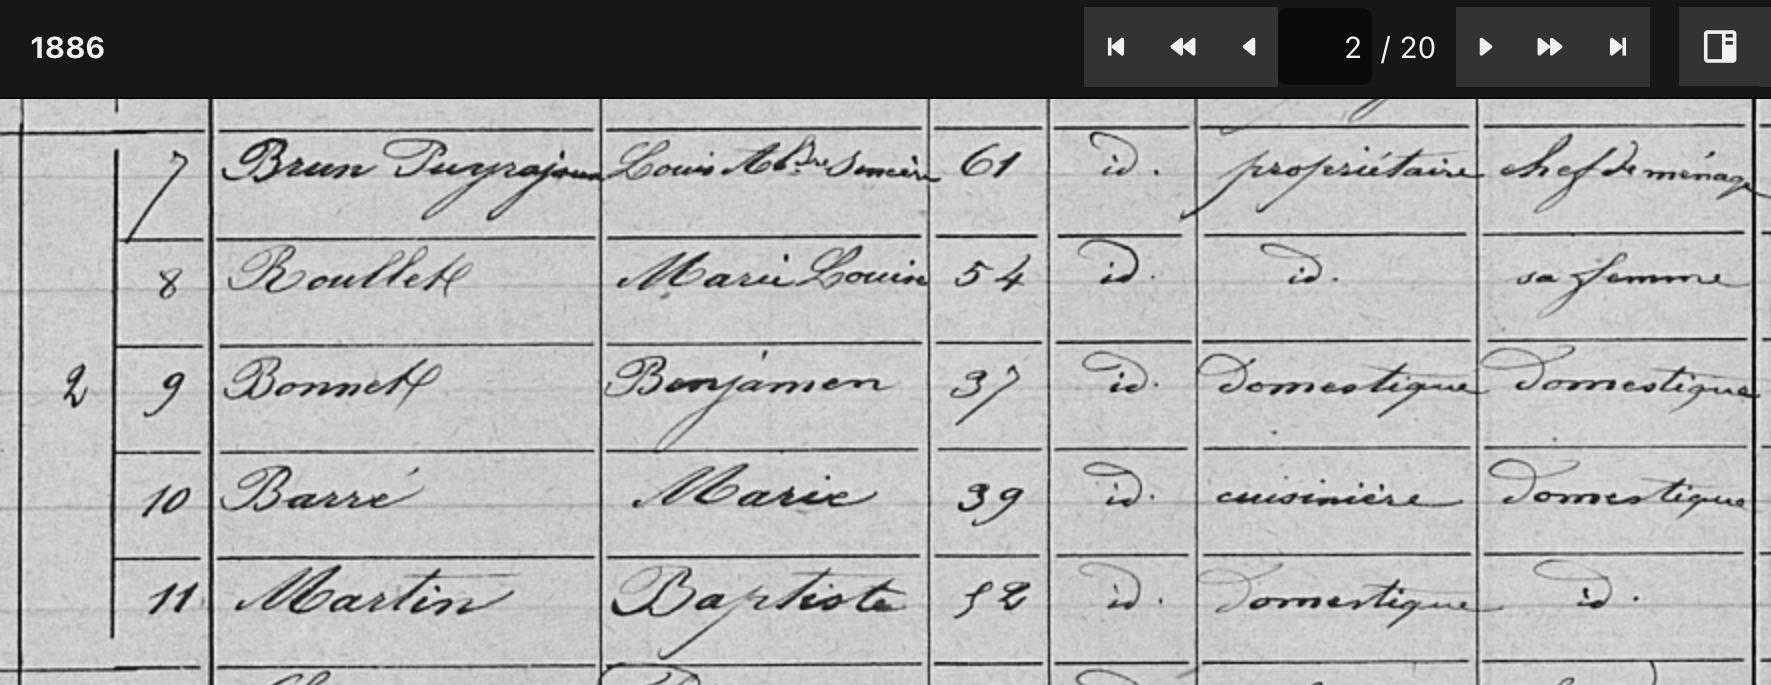 1886 2 / 20
7 Brun Puyrajoux Louis 61 id. propriétaire chef de ménage
8 Roullet Marie Louise 54 id. id. sa femme
2 9 Bonnet Benjamen 37 id. Domestique Domestique
10 Barré Marie 39 id. cuisinière Domestique
11 Martin Baptiste 52 id. Domestique id.